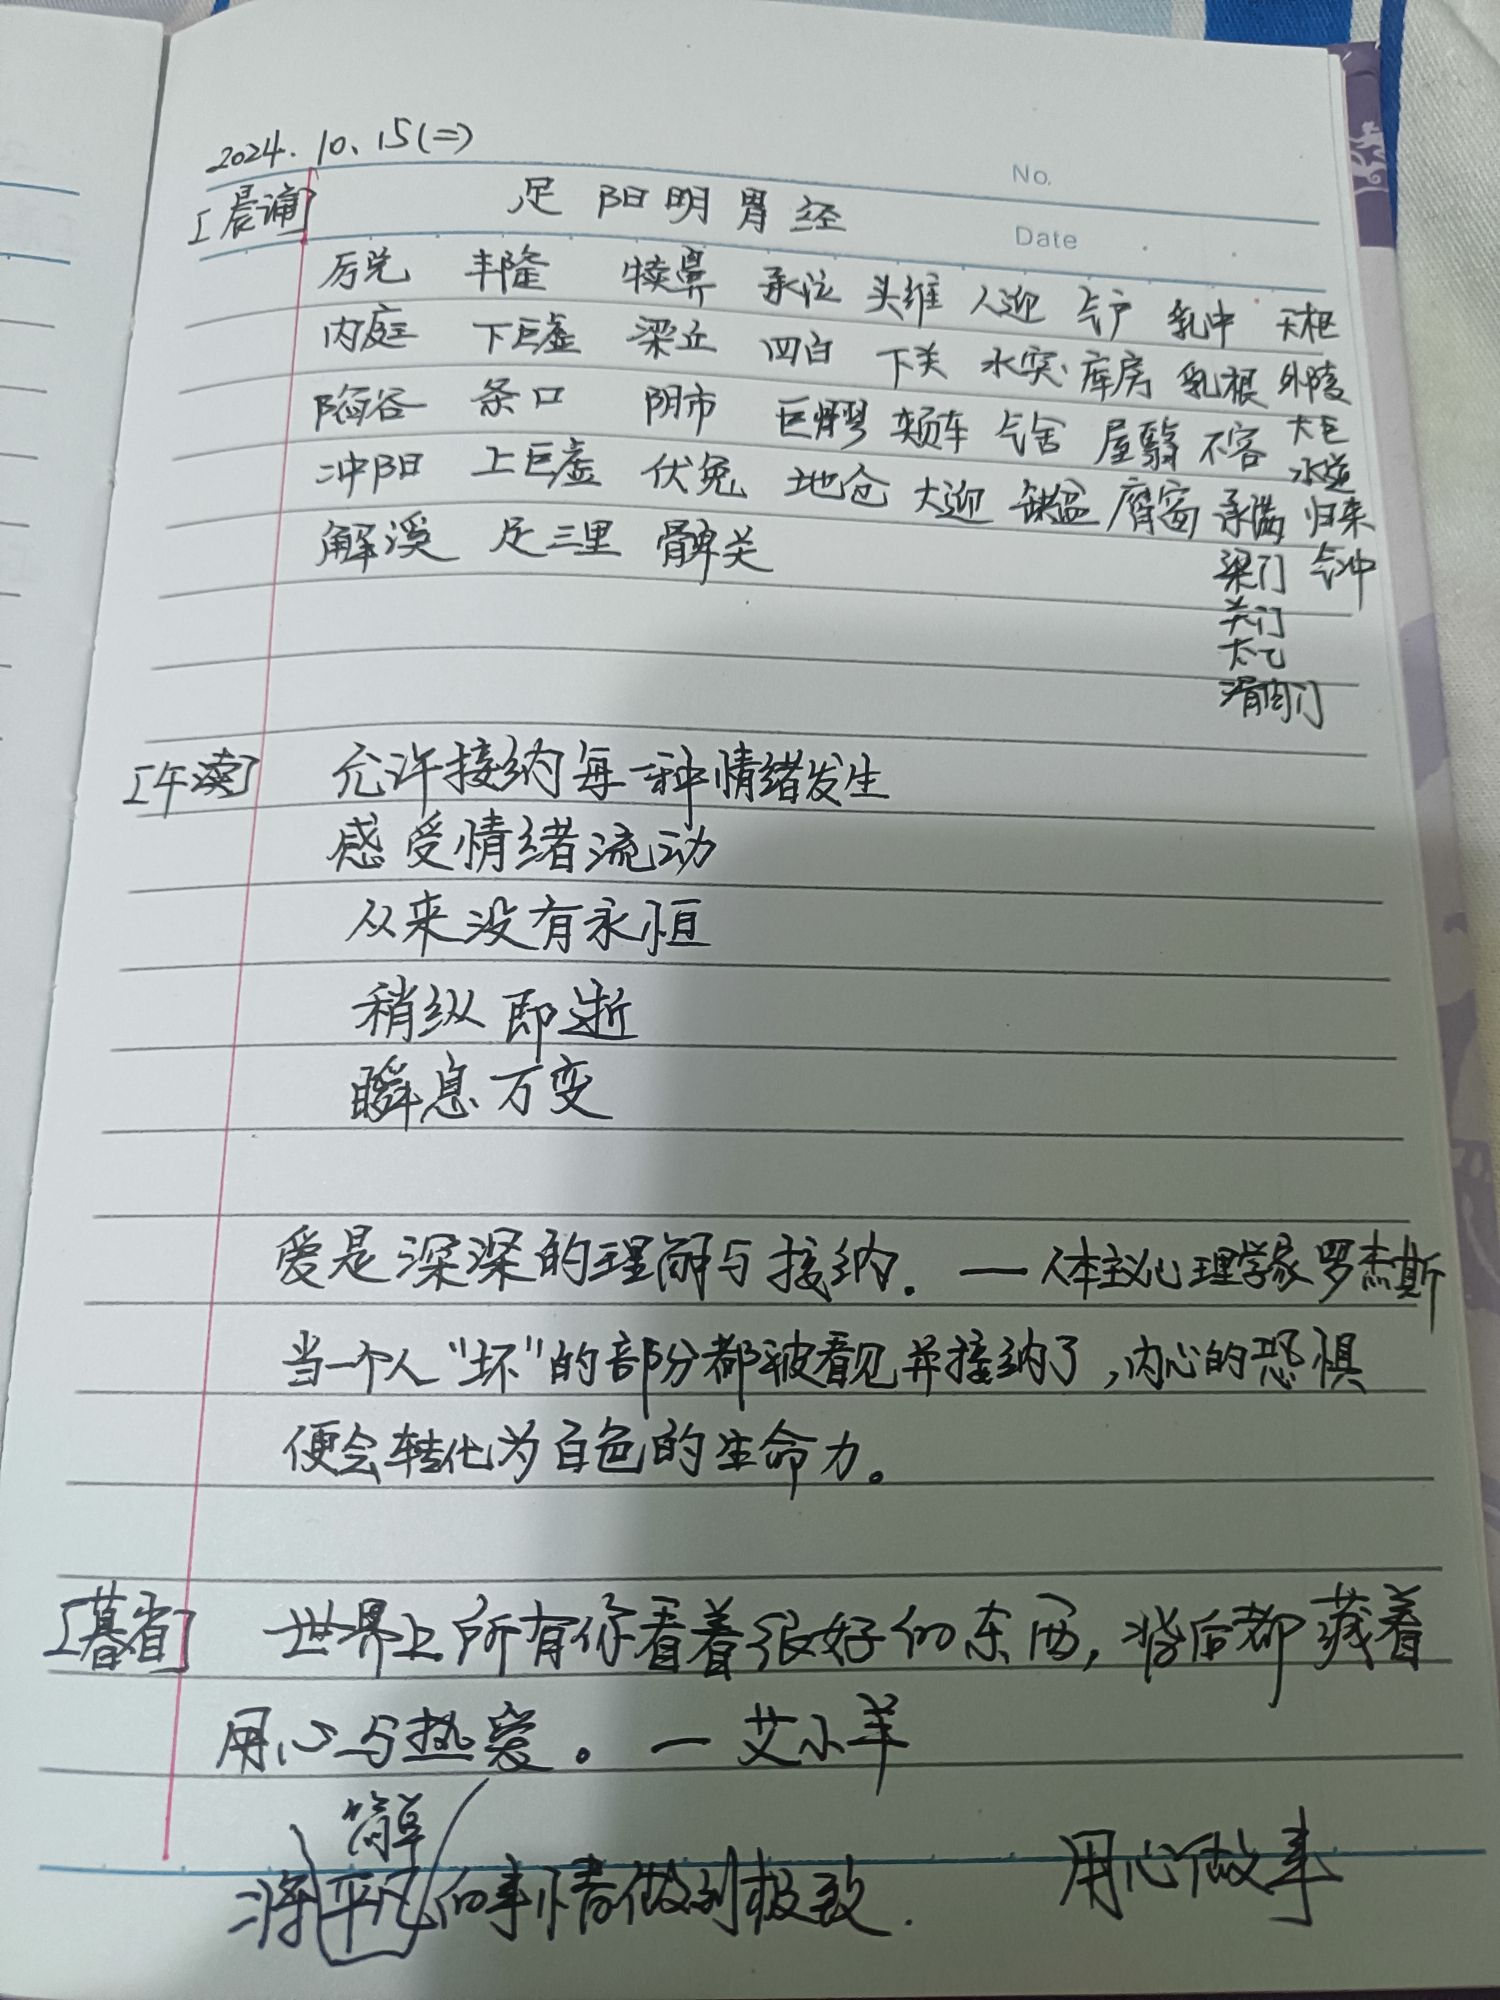 2024.10.15(二)
No.
[晨诵] 足阳明胃经
Date
厉兑 丰隆 犊鼻 承泣 头维 人迎 气户 乳中 天枢
内庭 下巨虚 梁丘 四白 下关 水突 库房 乳根 外陵
陷谷 条口 阴市 巨髎 颊车 气舍 屋翳 不容 大巨
冲阳 上巨虚 伏兔 地仓 大迎 缺盆 膺窗 承满 水道
解溪 足三里 髀关 梁门 归来
关门 气冲
太乙
滑肉门
[午读] 允许接纳每一种情绪发生
感受情绪流动
从来没有永恒
稍纵即逝
瞬息万变
爱是深深的理解与接纳. —人本主义心理学家罗杰斯
当一个人“坏”的部分都被看见并接纳了,内心的恐惧
便会转化为百色的生命力。
[暮省] 世界上所有你看着很好的东西,背后都藏着
用心与热爱。—艾小羊
简单
将平凡的事情做到极致. 用心做事